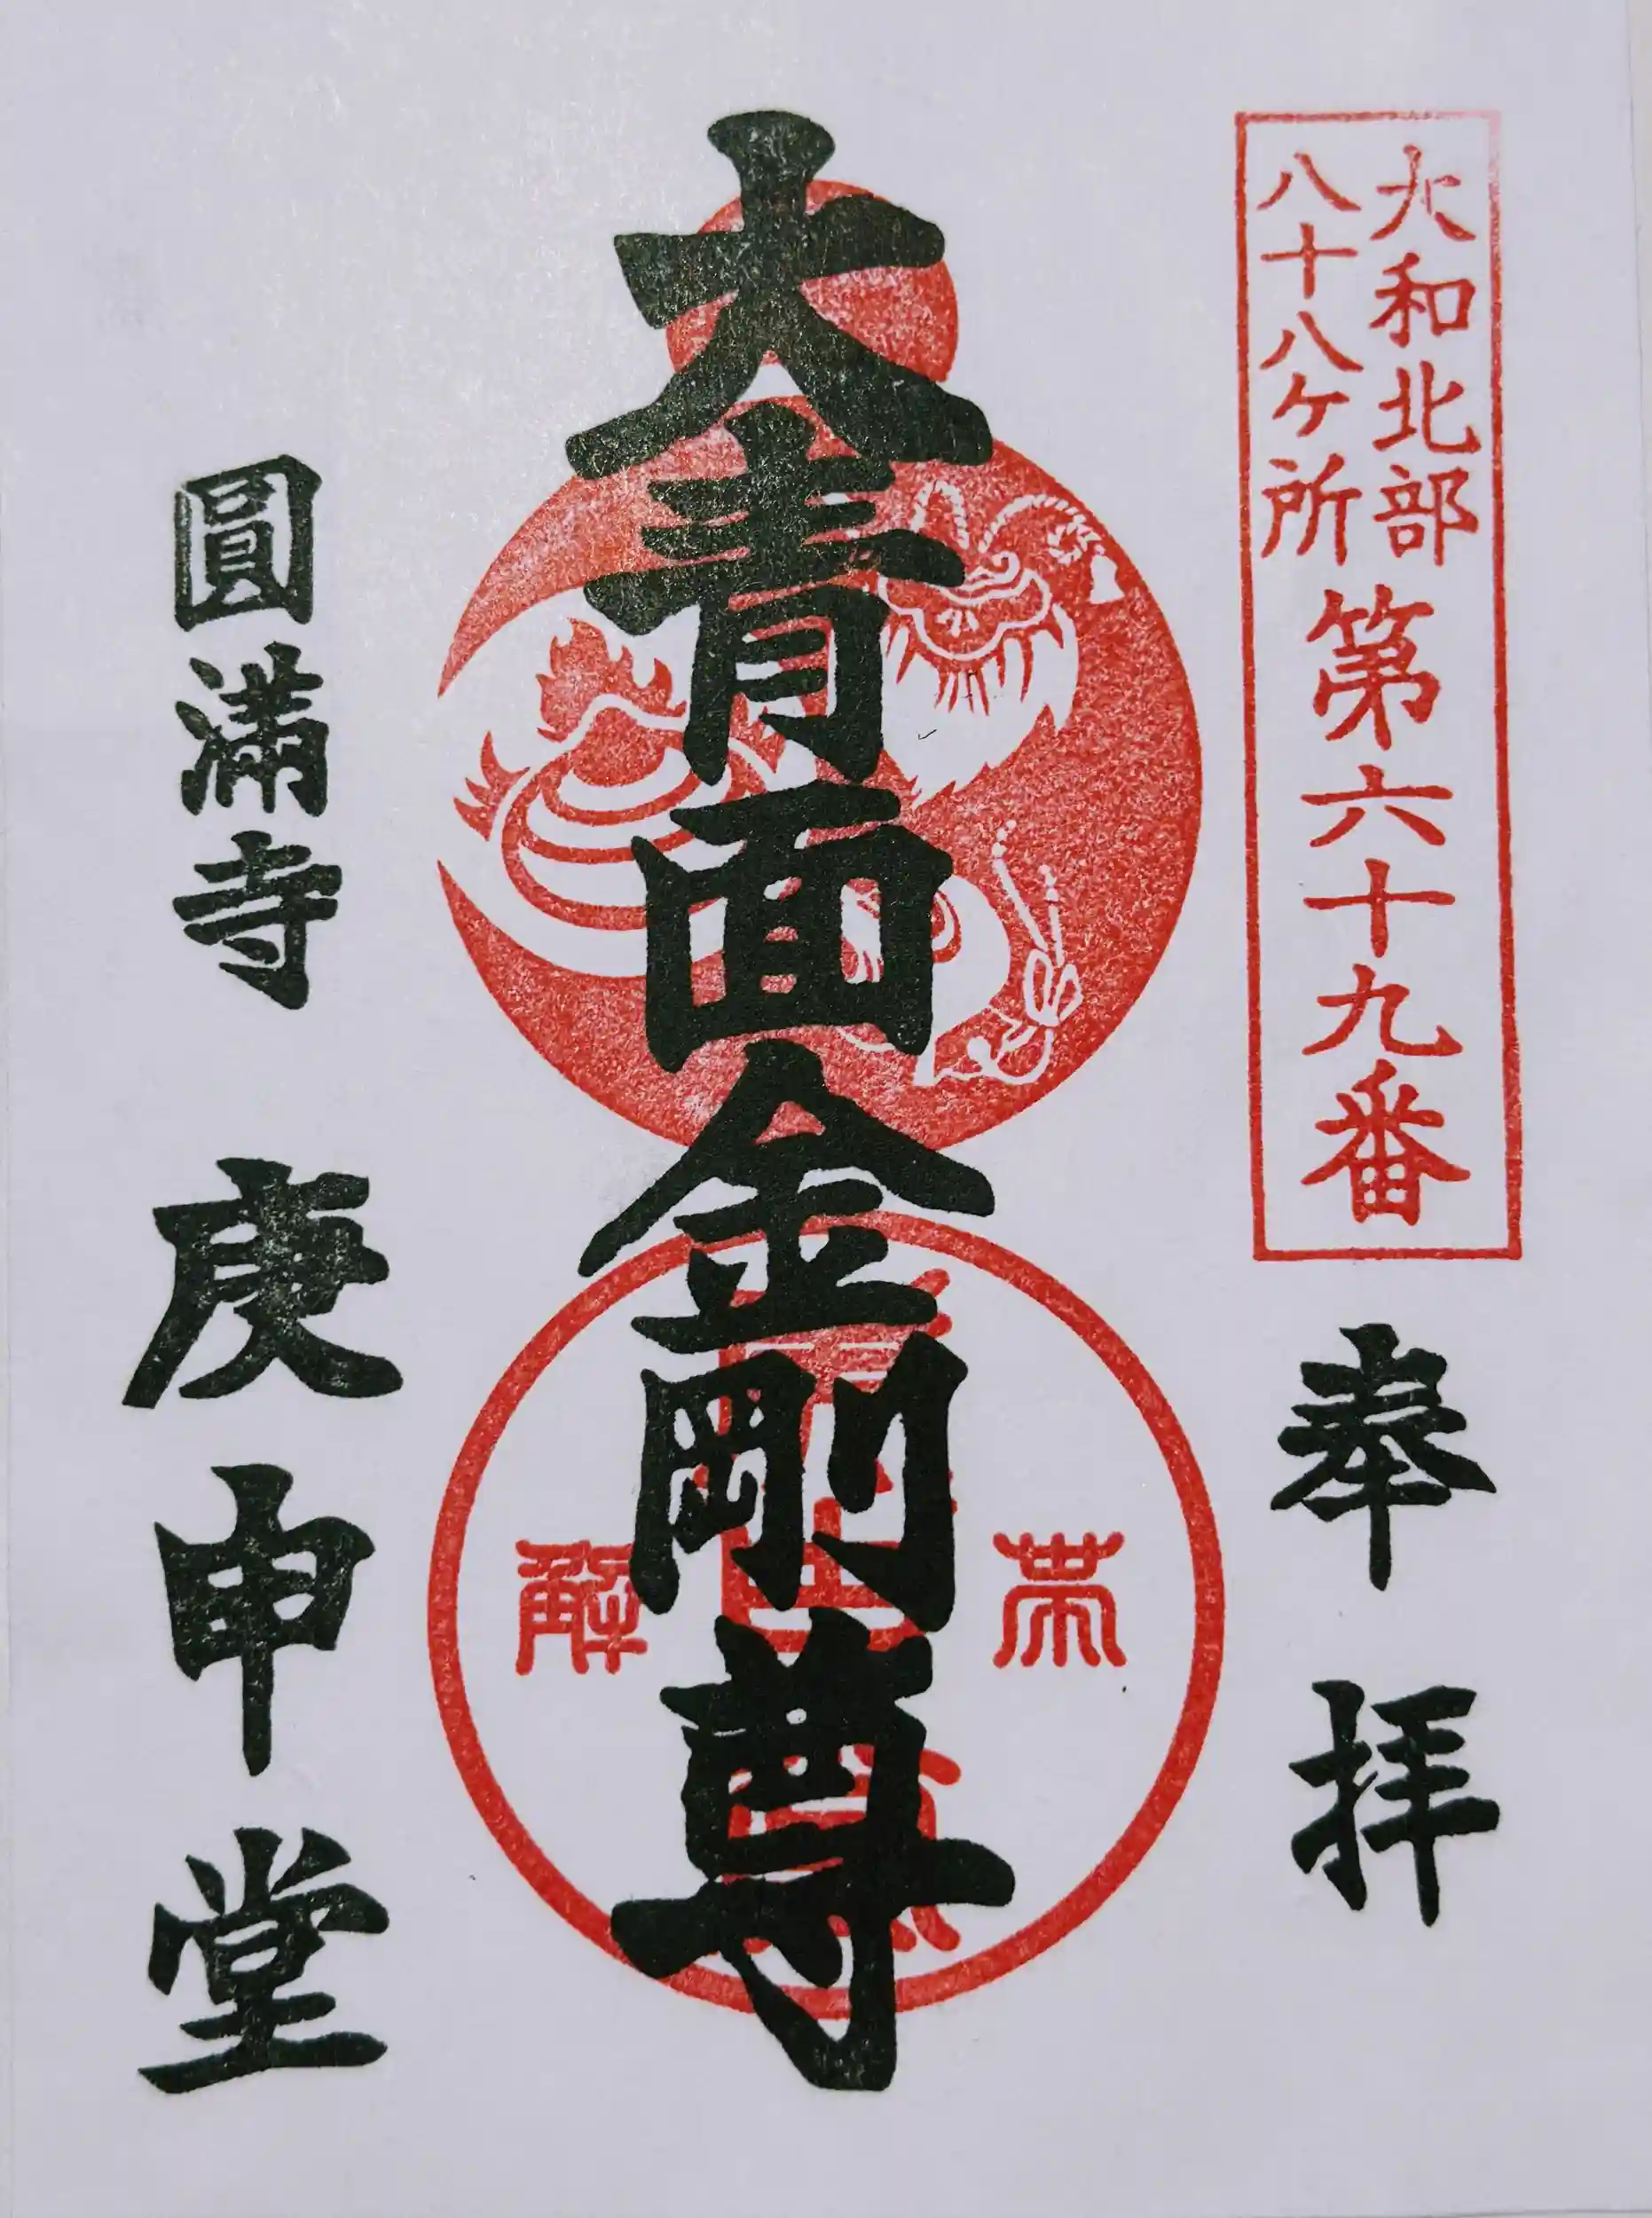 大和北部
八十八ヶ所
第六十九番
奉拝
大青面金剛尊
帯
解
圓満寺 庚申堂